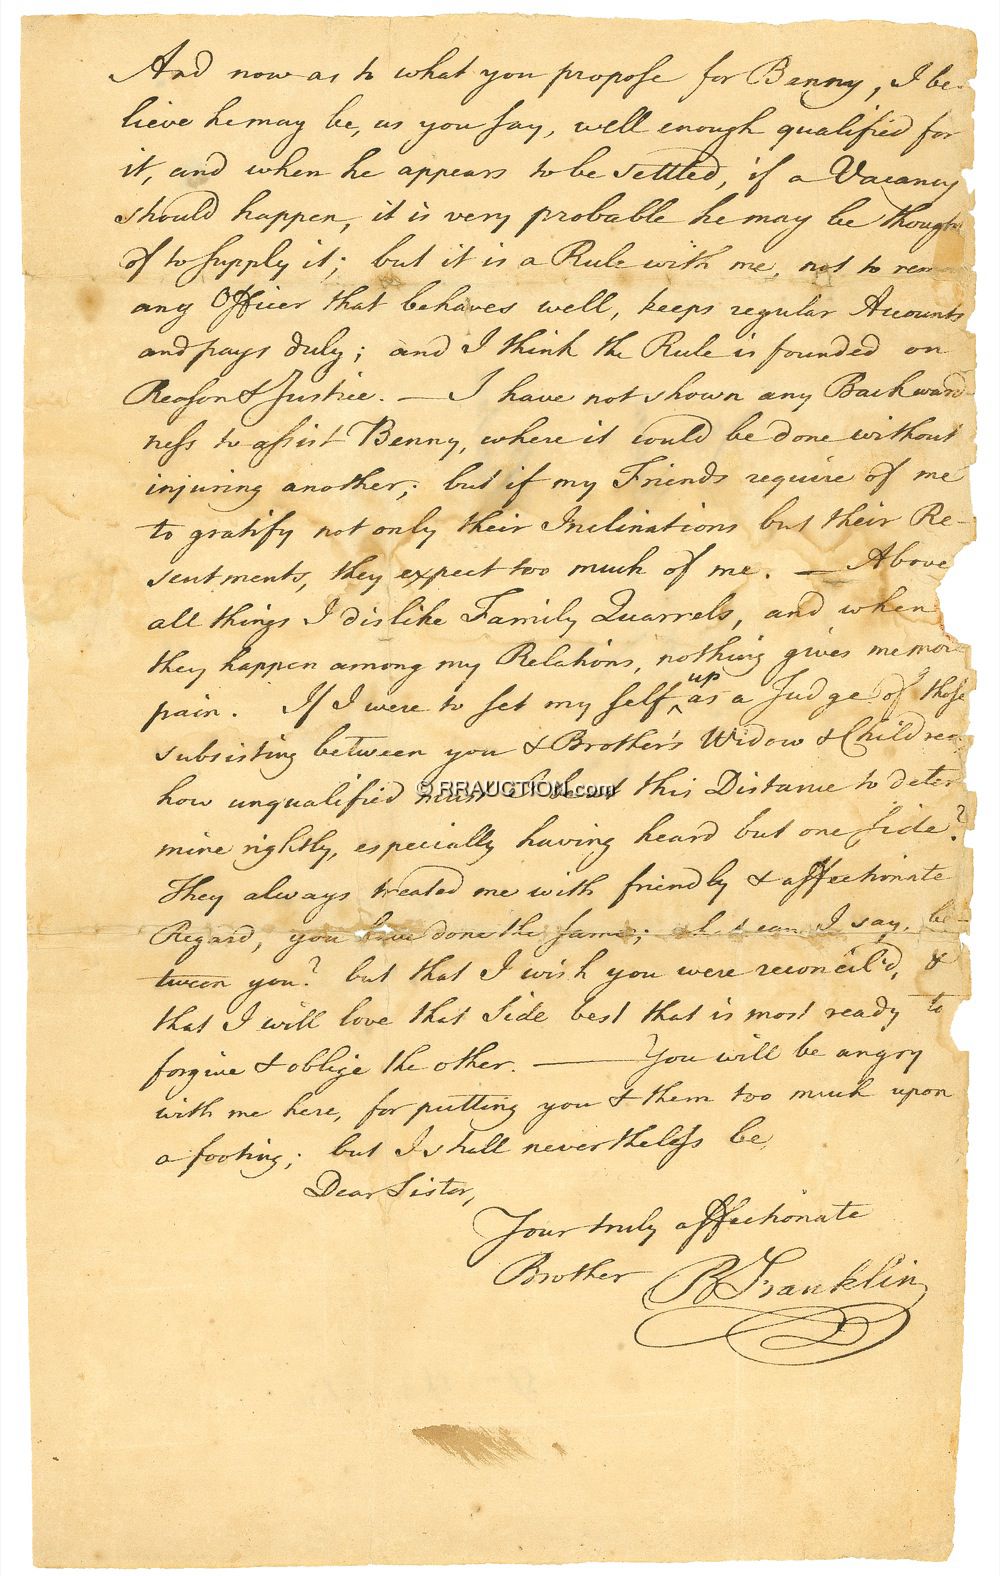 And now as to what you propose for Benny, I be-
lieve he may be, as you say, well enough qualified for
it, and when he appears to be settled, if a Vacancy
should happen, it is very probable he may be though
of to supply it; but it is a Rule with me, not to rem
any Officer that behaves well, keeps regular Accounts
and pays duly; and I think the Rule is founded on
Reason & Justice. — I have not shown any Backward-
ness to assist Benny, where it could be done without
injuring another; but if my Friends require of me
to gratify not only their Inclinations but their Re-
sentments, they expect too much of me. — Above
all things I dislike Family Quarrels, and when
they happen among my Relations, nothing gives me more
pain. If I were to set my self up as a Judge of those
subsisting between you & Brother's Widow & Children
how unqualified must I be at this Distance to deter
mine rightly, especially having heard but one side?
They always treated me with friendly & affectionate
Regard, you have done the same; what can I say, be-
tween you? but that I wish you were reconcil'd, &
that I will love that Side best that is most ready to
forgive & oblige the other. — You will be angry
with me here, for putting you & them too much upon
a footing; but I shall nevertheless be,
Dear Sister,
Your truly affectionate
Brother B Franklin
© RRAUCTION.com